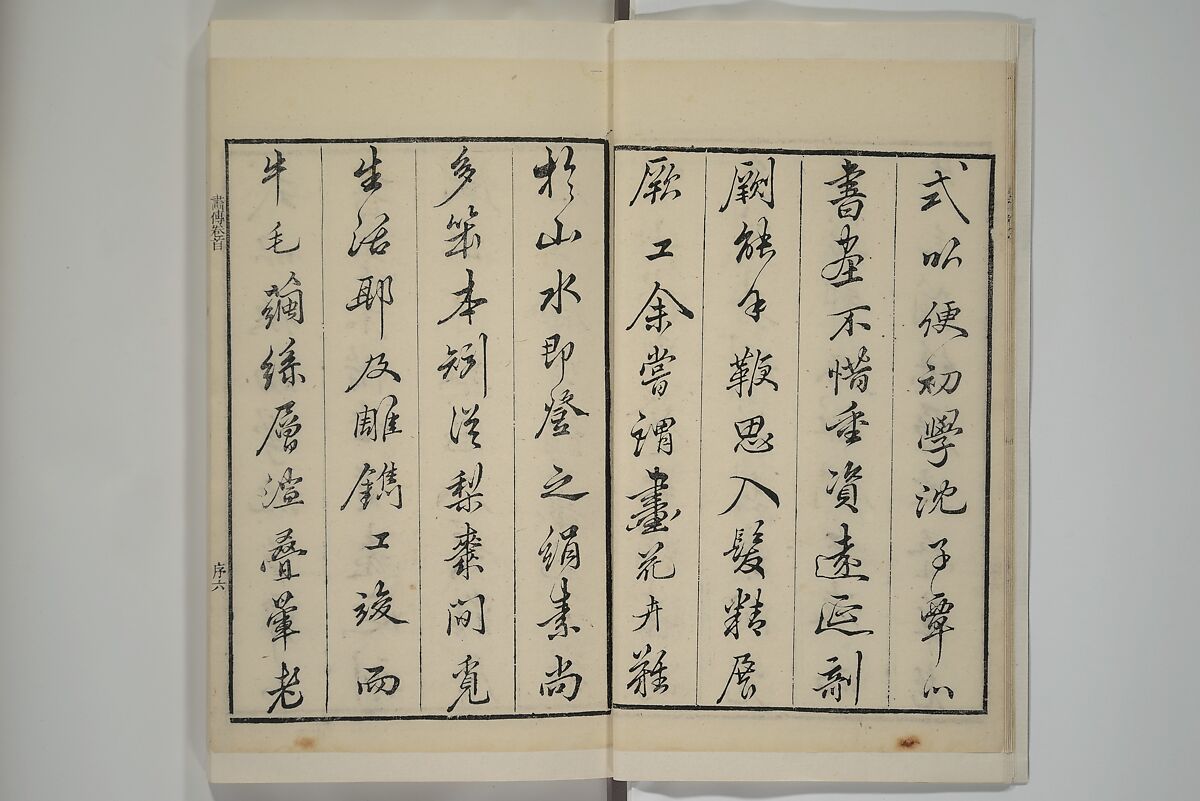 式以便初學沈子覃心
書畫不惜重資遠延剞
劂能手鞭思入髮精展
厥工余嘗謂畫花卉難
於山水即登之絹素尚
多笨本矧從梨棗間覓
生活耶及雕鐫工竣而
牛毛繭絲層渲疊暈老
畫傳卷首
序六